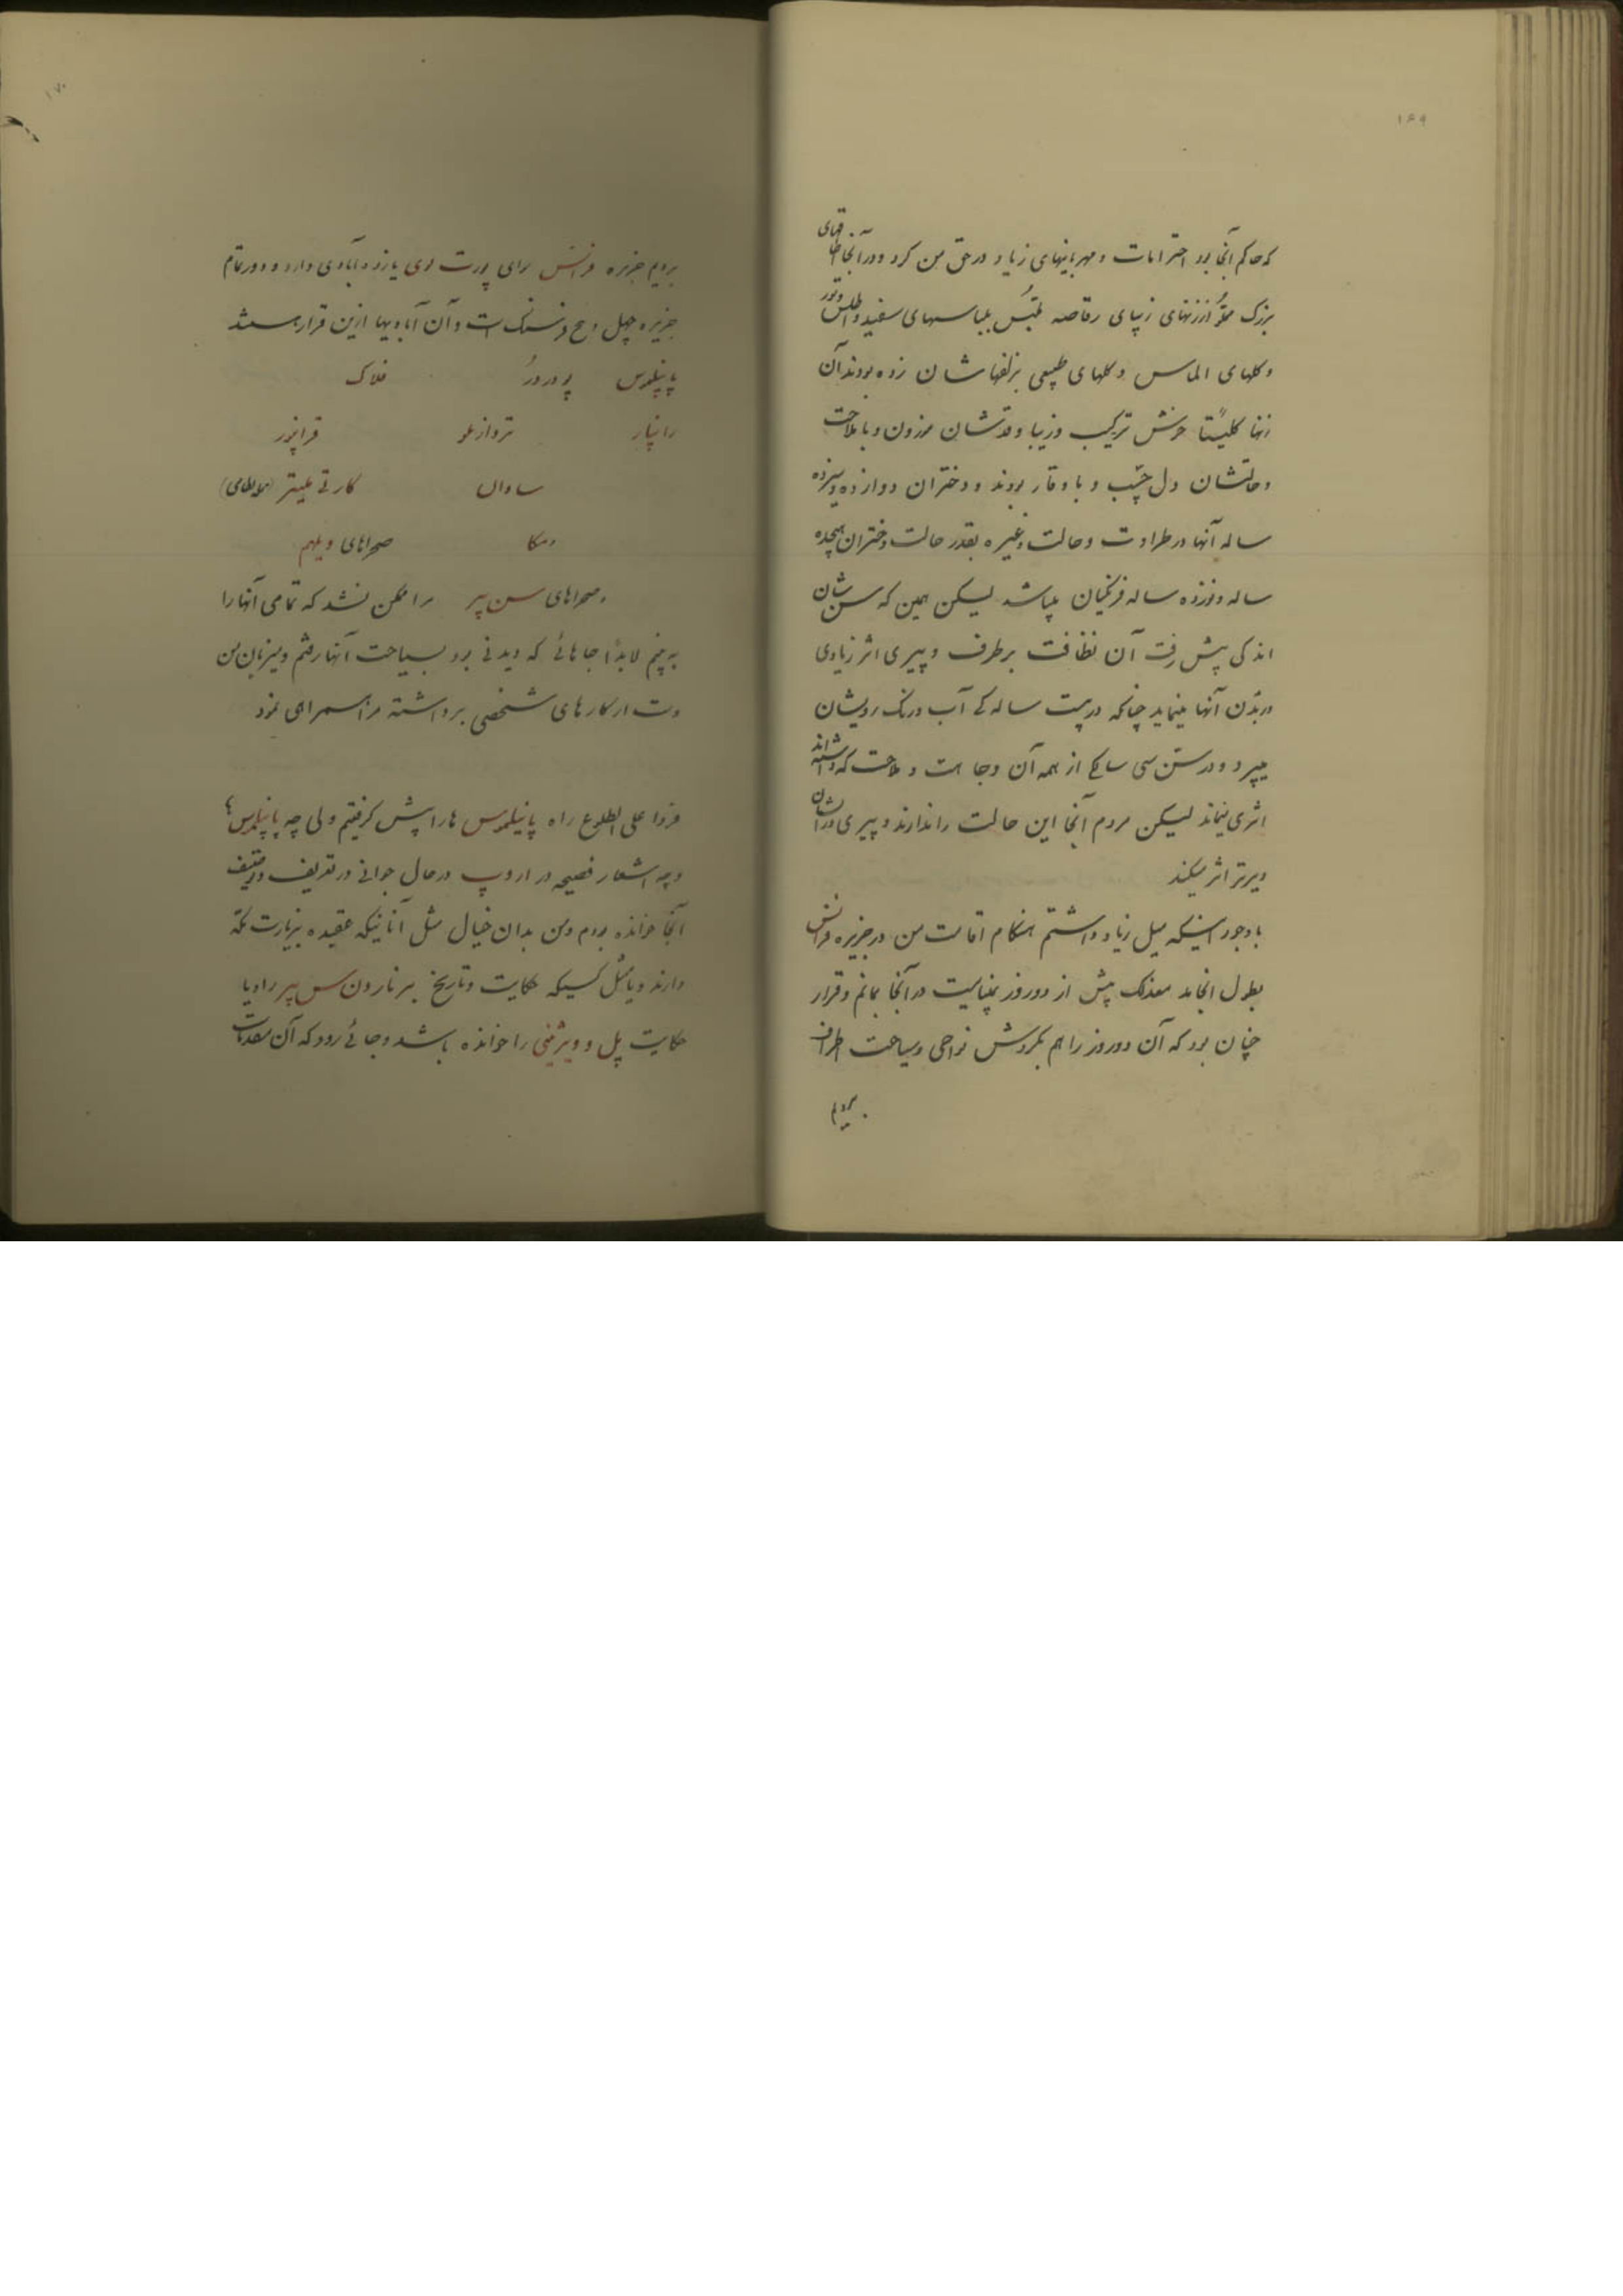 ۱۶۹
که حاکم آنجا بود احترامات و مهربانیهای زیاد در حق من کرد و در آنجا اطاقهای
بزرگ مملو از زنهای زیبای رقاصه ملبس بلباسهای سفید و اطلس و تور
و گلهای الماس و گلهای طبیعی بزلفهاشان زده بودند آن
زنها کلیتاً خوش ترکیب و زیبا و قدشان موزون و با ملاحت
و حالتشان دل چسب و با وقار بودند و دختران دوازده و سیزده
ساله آنها در طراوت و حالت و غیره بقدر حالت دختران هیجده
ساله و نوزده ساله فرنگیان میباشد لیکن همین که سن شان
اندکی پیش رفت آن نظافت برطرف و پیری اثر زیادی
در بدن آنها مینماید چنانکه در بیست ساله گی آب و رنگ رویشان
میپرد و در سن سی سالگی از همه آن وجاهت و ملاحت که داشته اند
اثری نیماند لیکن مردم آنجا این حالت را ندارند و پیری در ایشان
دیرتر اثر میکند
با وجود اینکه میل زیاد داشتم هنگام اقامت من در جزیره فرانس
بطول انجامد معذلک بیش از دو روز نمیبایست در آنجا بمانم و قرار
چنان بود که آن دو روز را هم بگردش نواحی و سیاحت اطراف
برویم
۱۷۰
برویم جزیره فرانس سوای پورت لوی یازده آبادی دارد و دور تمام
جزیره چهل و پنج فرسنگ است و آن آبادیها ازین قرار هستند
پامپلموس پودرور فلاک
رامپار تروازیلو قرانپور
ساوان کارتی میلیتر (نظامی)
مکا صحراهای ویلهم
و صحراهای سن پیر مرا ممکن نشد که تمامی آنها را
به بینم لابداً جاهائی که دیدنی بود بسیاحت آنها رفتم و میزبان من
دست از کارهای شخصی برداشته مرا همراهی نمود
فردا علی الطلوع راه پامپلموس ها را پیش گرفتیم ولی چه پامپلموس؟
و چه اشعار فصیحه در اروپ در حال جوانی در تعریف و توصیف
آنجا خوانده بودم و من بدان خیال مثل آنانیکه عقیده بزیارت مکه
دارند و یا مثل کسیکه حکایت و تاریخ برناردن سن پیر را و یا
حکایت پل و ویرژینی را خوانده باشد و جائی رود که آن مقدمات